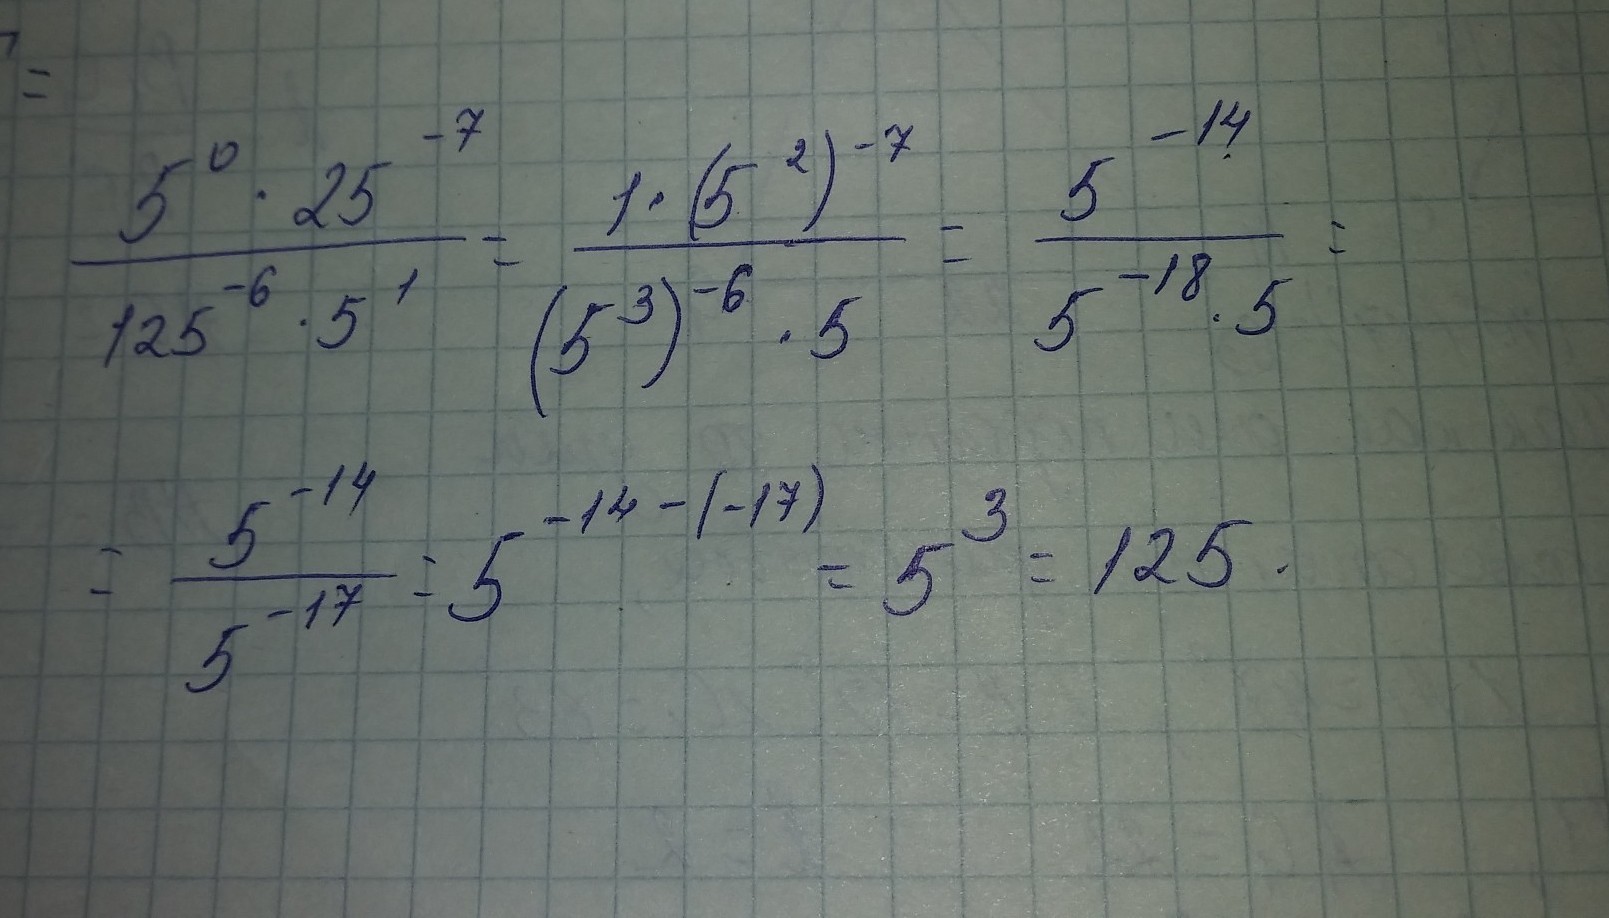 =
5^0 · 25^-7 / 125^-6 · 5^1 = 1 · (5^2)^-7 / (5^3)^-6 · 5 = 5^-14 / 5^-18 · 5 =
= 5^-14 / 5^-17 = 5^-14-(-17) = 5^3 = 125.